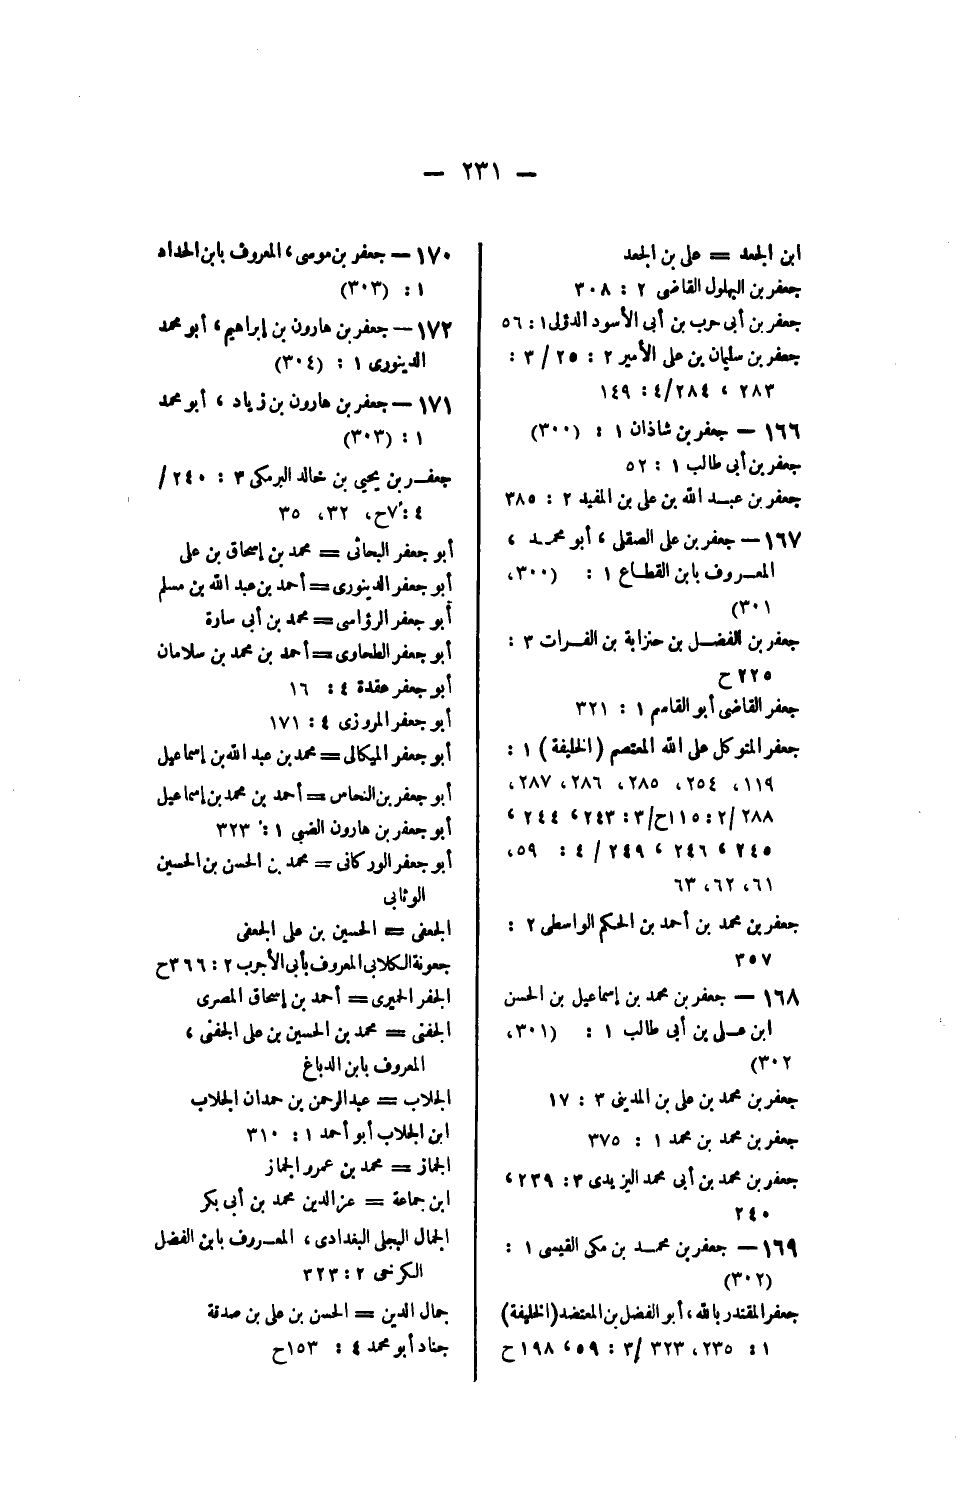 — ٢٣١ —
ابن الجعد = على بن الجعد
جعفر بن البهلول القاضى ٢ : ٣٠٨
جعفر بن أبى حرب بن أبى الأسود الدؤلى ١ : ٥٦
جعفر بن سليمان بن على الأمير ٢ : ٢٥ / ٣ :
٢٨٣ ، ٢٨٤ /٤ : ١٤٩
١٦٦ — جعفر بن شاذان ١ : (٣٠٠)
جعفر بن أبى طالب ١ : ٥٢
جعفر بن عبد الله بن على بن المفيد ٢ : ٣٨٥
١٦٧ — جعفر بن على الصقلى ، أبو محمد ،
المعروف بابن القطاع ١ : (٣٠٠،
٣٠١)
جعفر بن الفضل بن حنزابة بن الفرات ٣ :
٢٢٥ ح
جعفر القاضى أبو القاسم ١ : ٣٢١
جعفر المتوكل على الله المعتصم (الخليفة) ١ :
١١٩، ٢٥٤، ٢٨٥، ٢٨٦، ٢٨٧،
٢٨٨ /٢ : ١١٥ح/٣ : ٢٤٣، ٢٤٤ ،
٢٤٥ ، ٢٤٦ ، ٢٤٩ / ٤ : ٥٩،
٦١، ٦٢، ٦٣
جعفر بن محمد بن أحمد بن الحكم الواسطى ٢ :
٣٥٧
١٦٨ — جعفر بن محمد بن إسماعيل بن الحسن
ابن على بن أبى طالب ١ : (٣٠١،
٣٠٢)
جعفر بن محمد بن على بن المدينى ٣ : ١٧
جعفر بن محمد بن محمد ١ : ٣٧٥
جعفر بن محمد بن أبى محمد اليزيدى ٣ : ٢٣٩،
٢٤٠
١٦٩ — جعفر بن محمد بن مكى القيسى ١ :
(٣٠٢)
جعفر المقتدر بالله ، أبو الفضل بن المعتضد (الخليفة)
١ : ٢٣٥، ٣٢٣ /٣ : ٥٩، ١٩٨ ح
١٧٠ — جعفر بن موسى ، المعروف بابن الحداد
١ : (٣٠٣)
١٧٢ — جعفر بن هارون بن إبراهيم ، أبو محمد
الدينورى ١ : (٣٠٤)
١٧١ — جعفر بن هارون بن زياد ، أبو محمد
١ : (٣٠٣)
جعفر بن يحيى بن خالد البرمكى ٣ : ٢٤٠ /
٤ : ٧ح، ٣٢، ٣٥
أبو جعفر البحائى = محمد بن إسحاق بن على
أبو جعفر الدينورى = أحمد بن عبد الله بن مسلم
أبو جعفر الرؤاسى = محمد بن أبى سارة
أبو جعفر الطحاوى = أحمد بن محمد بن سلامان
أبو جعفر عقدة ٤ : ١٦
أبو جعفر المروزى ٤ : ١٧١
أبو جعفر الميكالى = محمد بن عبد الله بن إسماعيل
أبو جعفر بن النحاس = أحمد بن محمد بن إسماعيل
أبو جعفر بن هارون الضبى ١ : ٣٢٣
أبو جعفر الوركانى = محمد بن الحسن بن الحسين
الوثابى
الجعفى = الحسين بن على الجعفى
جعونة الكلابى المعروف بأبى الأجرب ٢ : ٣٦٦ح
الجفر الحميرى = أحمد بن إسحاق المصرى
الجفنى = محمد بن الحسين بن على الجفنى ،
المعروف بابن الدباغ
الجلاب = عبد الرحمن بن حمدان الجلاب
ابن الجلاب أبو أحمد ١ : ٣١٠
الجماز = محمد بن عمرو الجماز
ابن جماعة = عز الدين محمد بن أبى بكر
الجمال البجلى البغدادى ، المعروف بابن الفضل
الكرخى ٢ : ٣٢٣
جمال الدين = الحسن بن على بن صدقة
جناد أبو محمد ٤ : ١٥٣ح